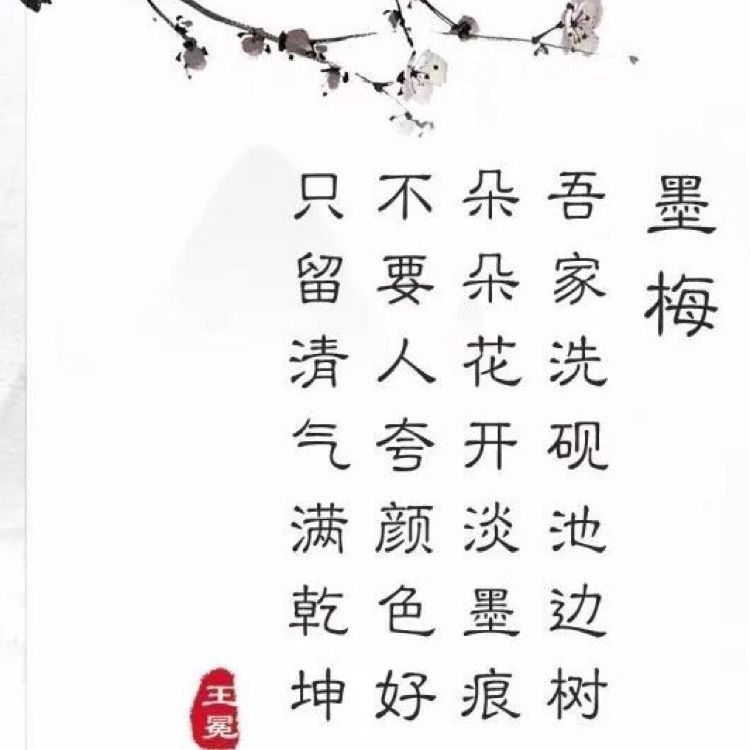 墨梅
吾家洗砚池边树
朵朵花开淡墨痕
不要人夸颜色好
只留清气满乾坤
王冕